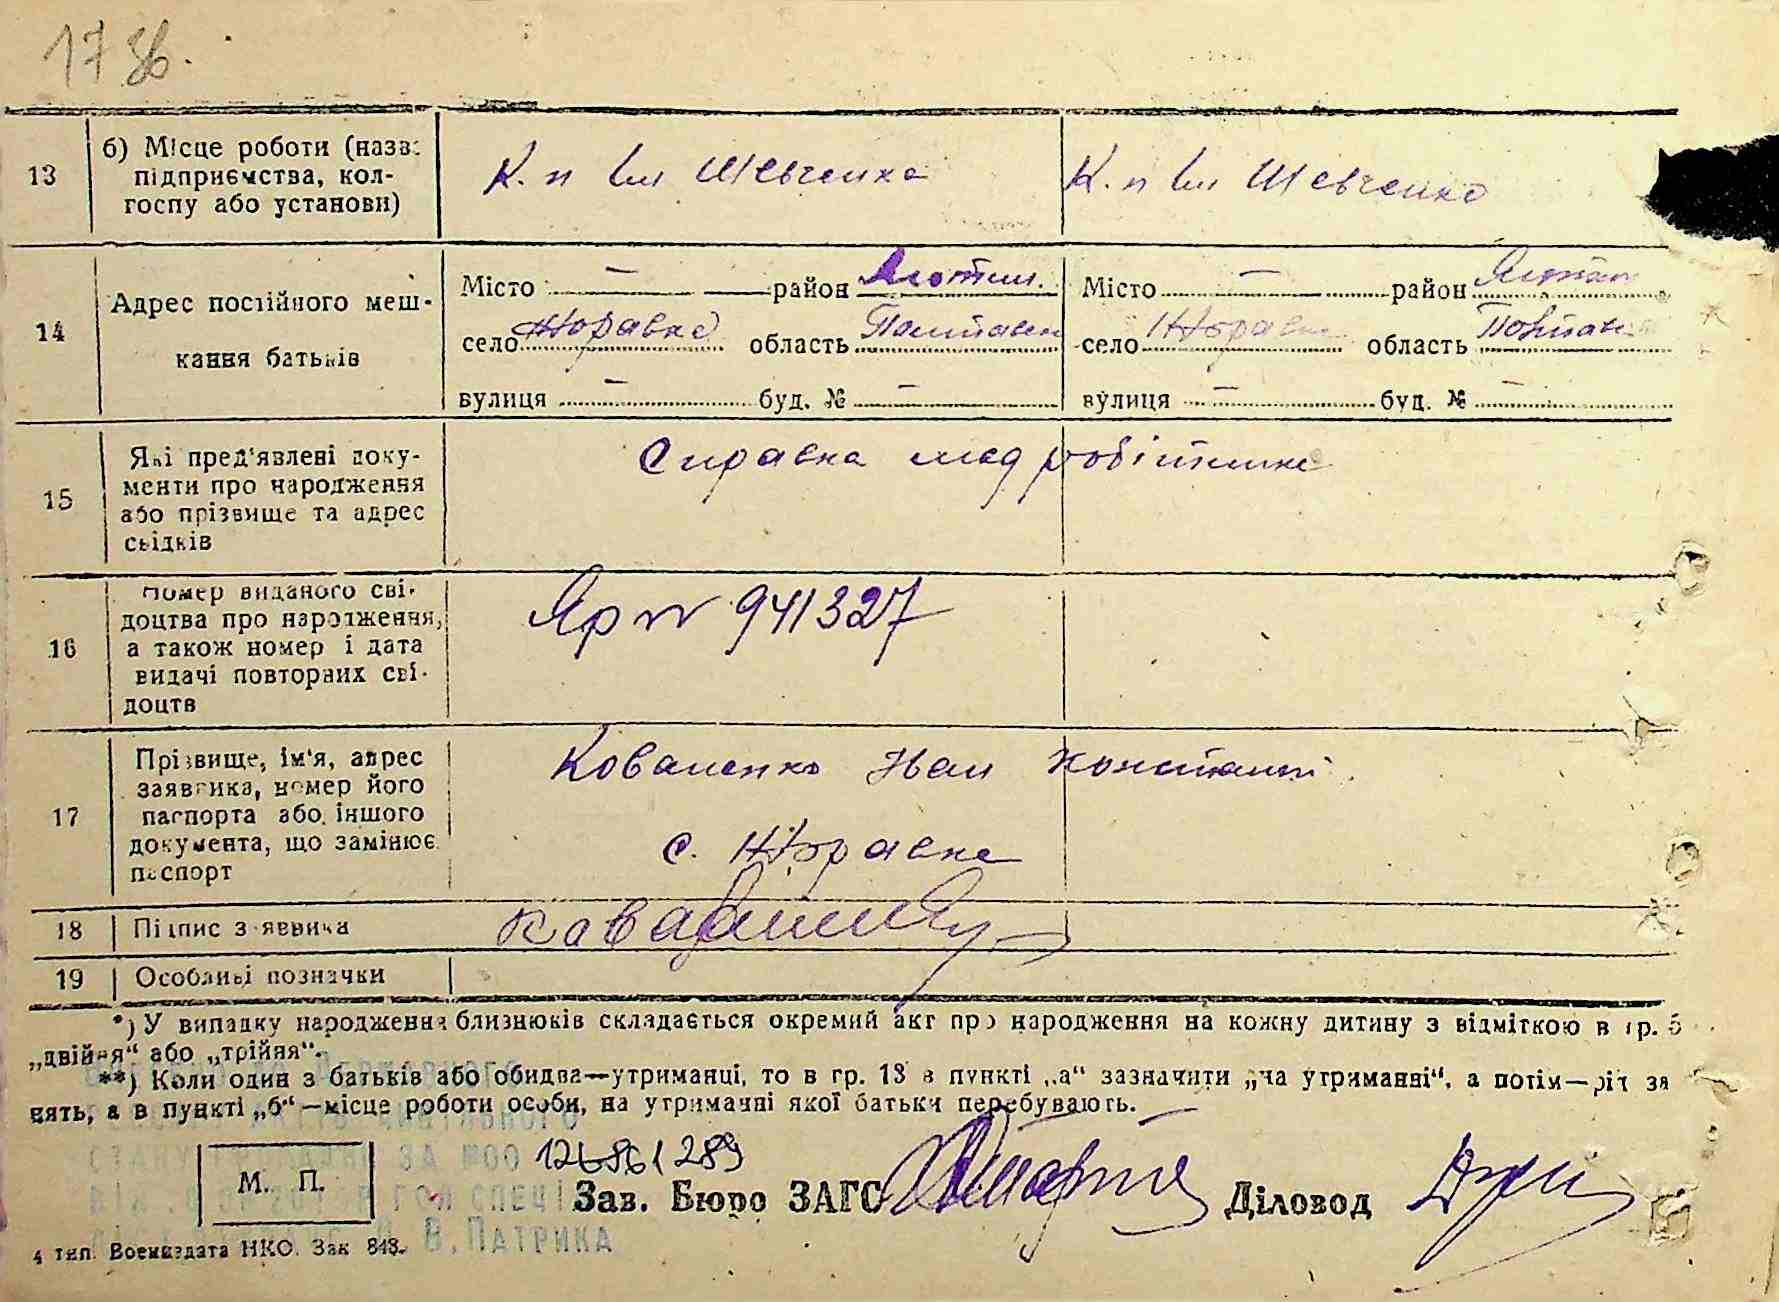 17 зв.
13
б) Місце роботи (назва
підприємства, кол-
госпу або установи)
К. п Ім Шевченка
К. п Ім Шевченко
14
Адрес постійного меш-
кання батьків
Місто — район Яготин.
село Жоравка область Полтавськ
вулиця — буд. № —
Місто — район Яготин
село Жоравка область Полтавськ
вулиця — буд. № —
15
Які пред'явлені доку-
менти про народження
або прізвище та адрес
свідків
Справка мед робітника
16
Номер виданого сві-
доцтва про народження,
а також номер і дата
видачі повторних сві-
доцтв
Яр № 941327
17
Прізвище, ім'я, адрес
заявника, номер його
паспорта або іншого
документа, що замінює
паспорт
Коваленко Иван Констант.
с. Жоравка
18 Підпис заявника
19 Особливі позначки
*) У випадку народження близнюків складається окремий акт про народження на кожну дитину з відміткою в гр. 5
„двійня“ або „трійня“.
**) Коли один з батьків або обидва—утриманці, то в гр. 13 в пункті „а“ зазначити „на утриманні“, а потім—рід за
нять, а в пункті „б“—місце роботи особи, на утриманні якої батьки перебувають.
М. П.
Зав. Бюро ЗАГС
Діловод
В. ПАТРИКА
4 тип. Воениздата НКО. Зак 848.